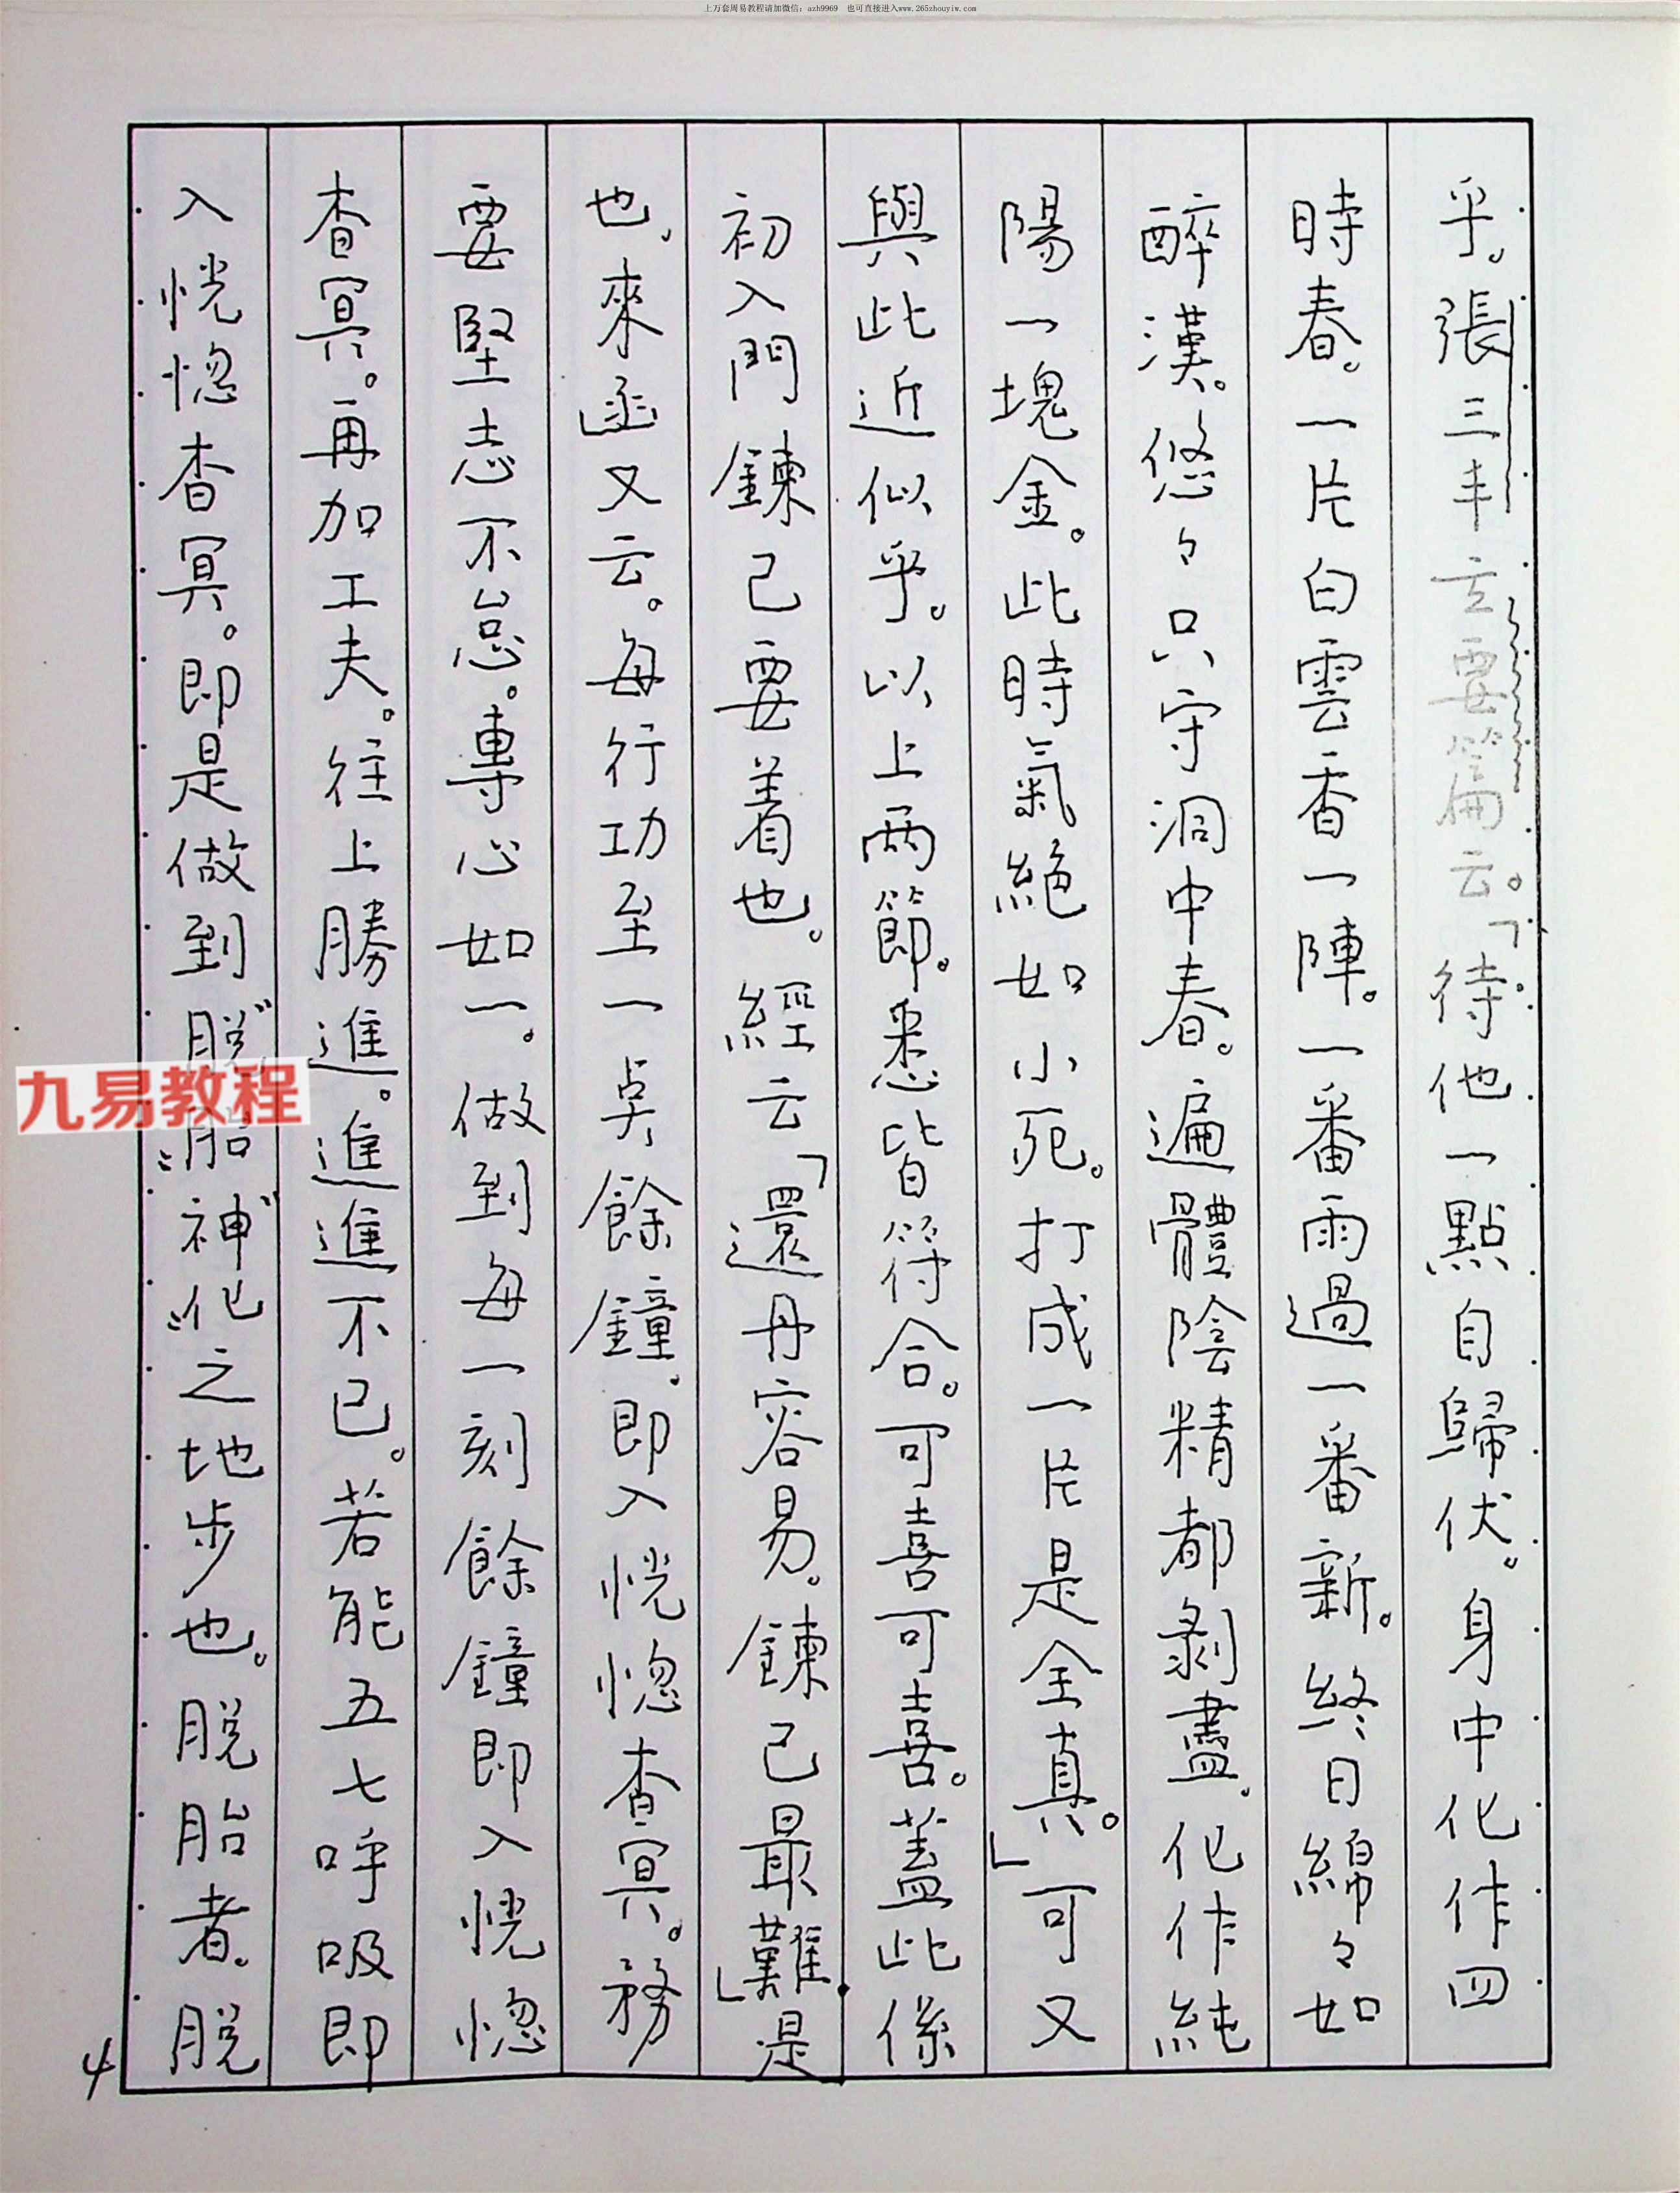 上万套周易教程请加微信：azh9969　也可直接进入www.265zhouyiw.com
乎。張三丰玄要篇云。「待他一點自歸伏。身中化作四
時春。一片白雲香一陣。一番雨過一番新。終日綿々如
醉漢。悠々只守洞中春。遍體陰精都剥盡。化作純
陽一塊金。此時氣絕如小死。打成一片是全真。」可又
與此近似乎。以上兩節。悉皆符合。可喜可喜。蓋此係
初入門鍊己要着也。經云「還丹容易。鍊己最難」是
也。來函又云。每行功至一点餘鐘。即入恍惚杳冥。務
要堅志不怠。專心如一。做到每一刻餘鐘即入恍惚
杳冥。再加工夫。往上勝進。進進不已。若能五七呼吸即
入恍惚杳冥。即是做到脱胎神化之地步也。脱胎者。脱
九易教程
4